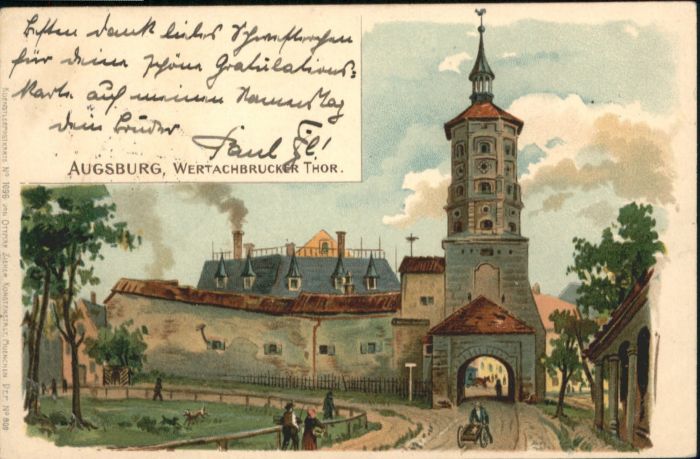 Besten Dank liebes Schwesterchen
für deine schöne Gratulations=
Karte auf meinen Namenstag
dein Bruder
Paul
AUGSBURG, WERTACHBRUCKER THOR.
KUENSTLERPOSTKARTE No 1696 VON OTTMAR ZIEHER, KUNSTANSTALT, MUENCHEN. DEP. No 809